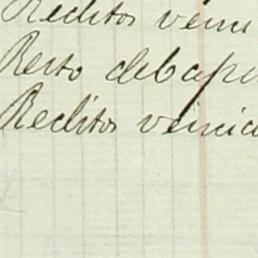 Reditos venci
Resto del capi
Reditos vencid